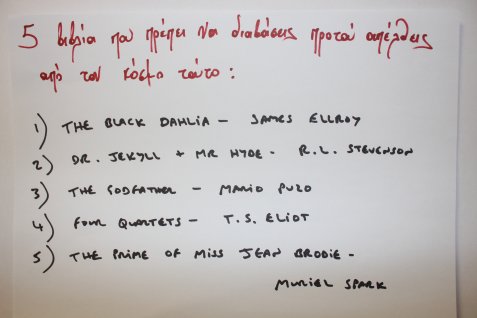 5 βιβλία που πρέπει να διαβάσεις προτού απέλθεις
από τον κόσμο τούτο:
1) THE BLACK DAHLIA - JAMES ELLROY
2) DR. JEKYLL + MR HYDE - R.L. STEVENSON
3) THE GODFATHER - MARIO PUZO
4) FOUR QUARTETS - T.S. ELIOT
5) THE PRIME OF MISS JEAN BRODIE -
MURIEL SPARK